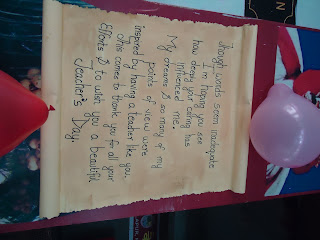 though words seem inadequate
I'm hoping you see
how deeply your caring has
influenced me.
My dreams & so many of my
points of view were
inspired by having a teacher like you.
This comes to thank you for all your
Efforts & to wish you a beautiful
Teacher's Day.
N